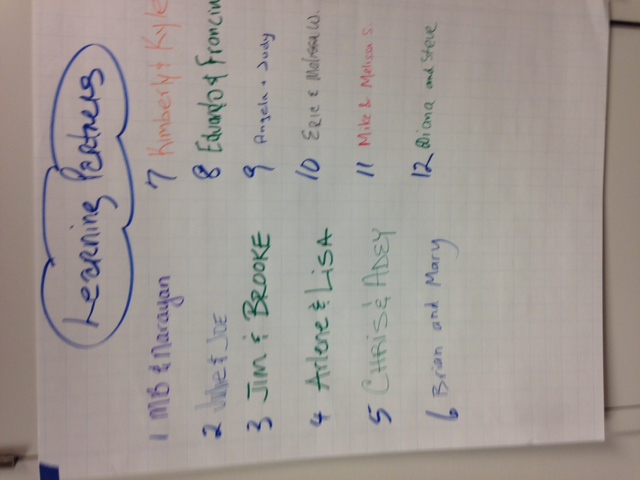 Learning Partners
1 MB & Narayan
2 Julie & JOE
3 JIM & BROOKE
4 Arlene & LISA
5 CHRIS & ADEY
6 Brian and Mary
7 Kimberly & Kyle
8 Eduardo & Francin
9 Angela & Judy
10 ERIC & Melissa W.
11 Mike & Melissa S.
12 Diana and Steve